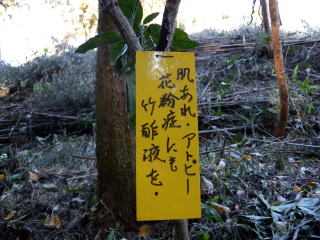 肌あれ・アトピー
花粉症にも
竹酢液を.